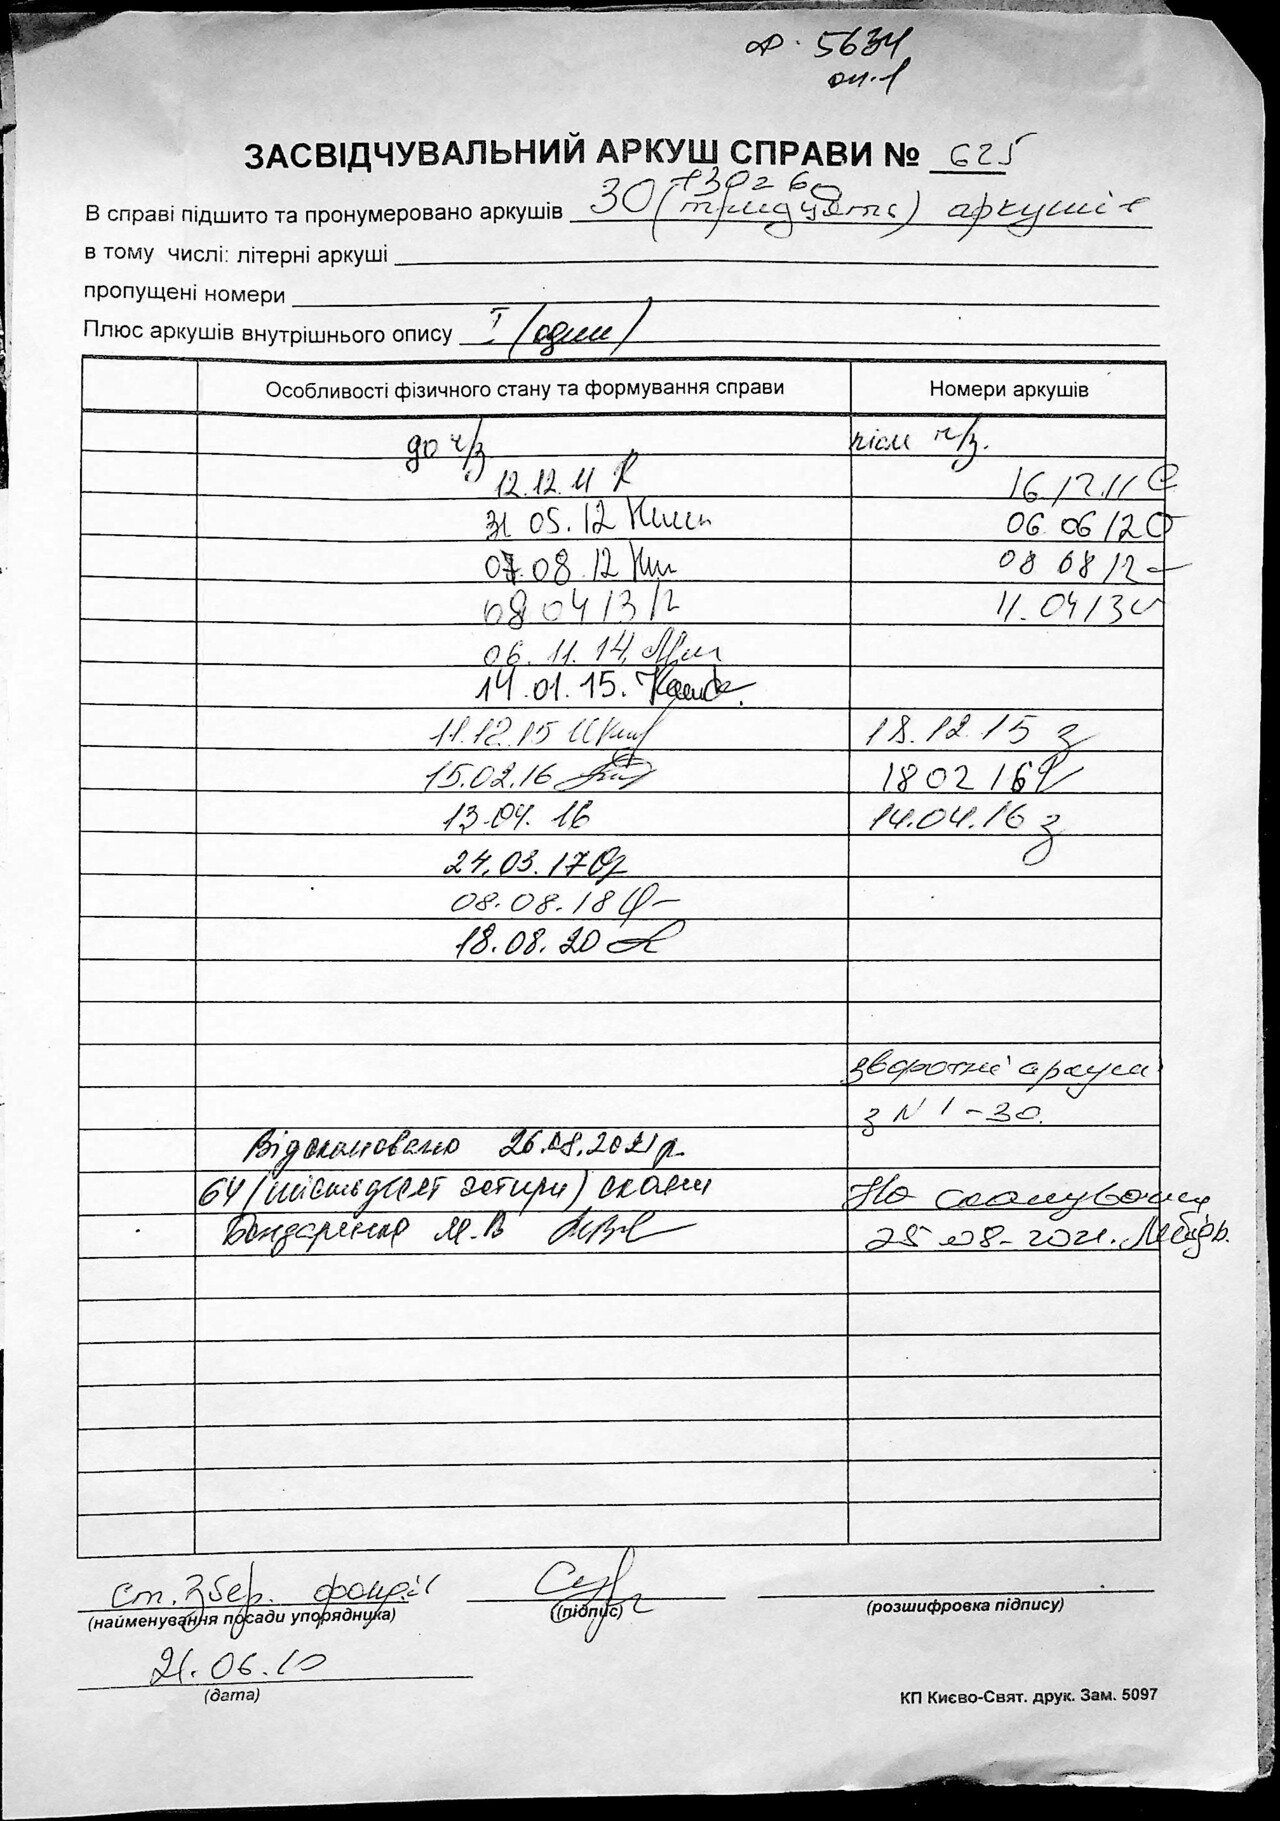 ф. 5634
оп.1
ЗАСВІДЧУВАЛЬНИЙ АРКУШ СПРАВИ № 625
В справі підшито та пронумеровано аркушів 30 (тридцять) аркушів
в тому числі: літерні аркуші
пропущені номери
Плюс аркушів внутрішнього опису I (один)
Особливості фізичного стану та формування справи Номери аркушів
до ч/з після ч/з.
12.12.11 16.12.11
31.05.12 06.06.12
07.08.12 08.08.12
08.04.13 11.04.13
06.11.14
14.01.15.
11.12.15 18.12.15
15.02.16 18.02.16
13.04.16 14.04.16
24.03.17
08.08.18
18.08.20
зворотні аркуші
з N 1-30.
Відскановано 26.08.2021р.
64 (шістдесят чотири) скани На сканування
Бондаренко М.В 25.08-2021.
ст. збер. фондів
(найменування посади упорядника) (підпис) (розшифровка підпису)
21.06.10
(дата)
КП Києво-Свят. друк. Зам. 5097